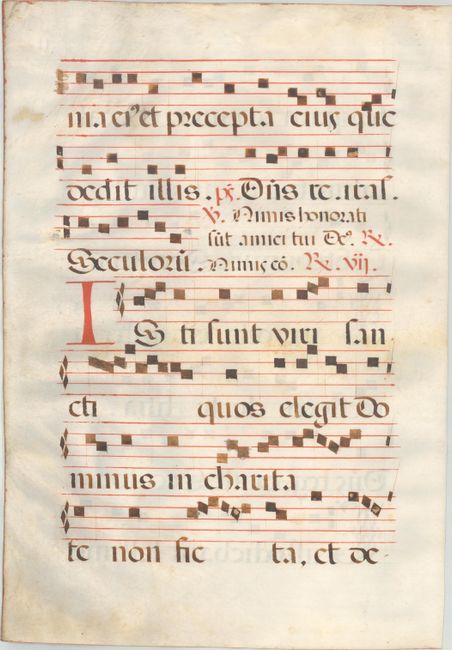 nia ei⁹ et precepta eius que
dedit illis. ps. Dñs re. iras.
℣. Nimis honorati
sũt amici tui De⁹. ℞.
Seculorũ. Nimis cõ. ℞. vij.
I S ti sunt viri san
cti quos elegit Do
minus in charita
te non fic ta, et de